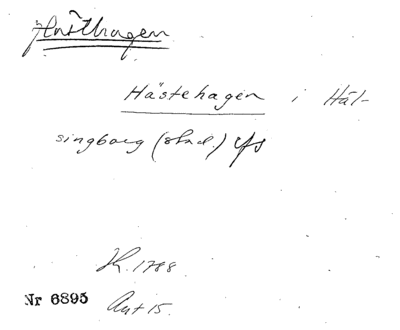 Hästhagen
Hästehagen i Häl-
singborg (stad.)
K. 1788.
Nr 6895 Ant 15.